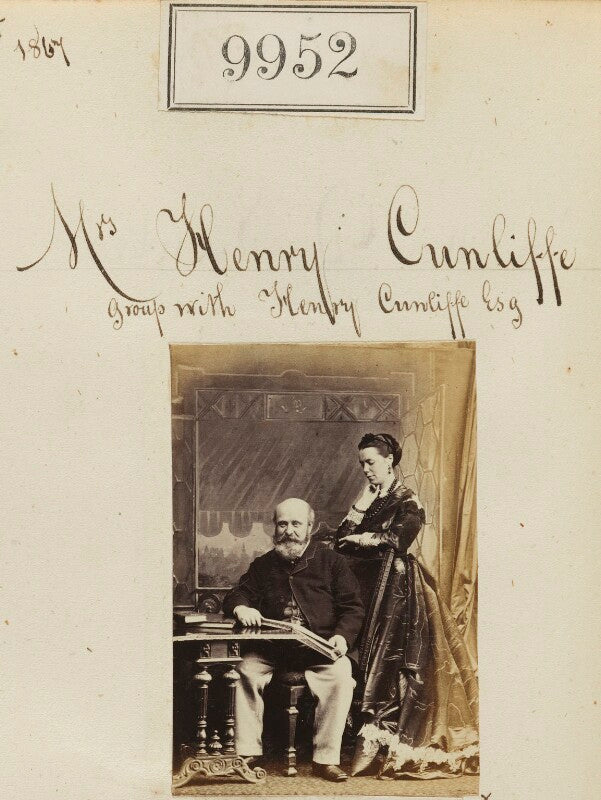 1867
9952
Mrs Henry Cunliffe
Group with Henry Cunliffe Esq